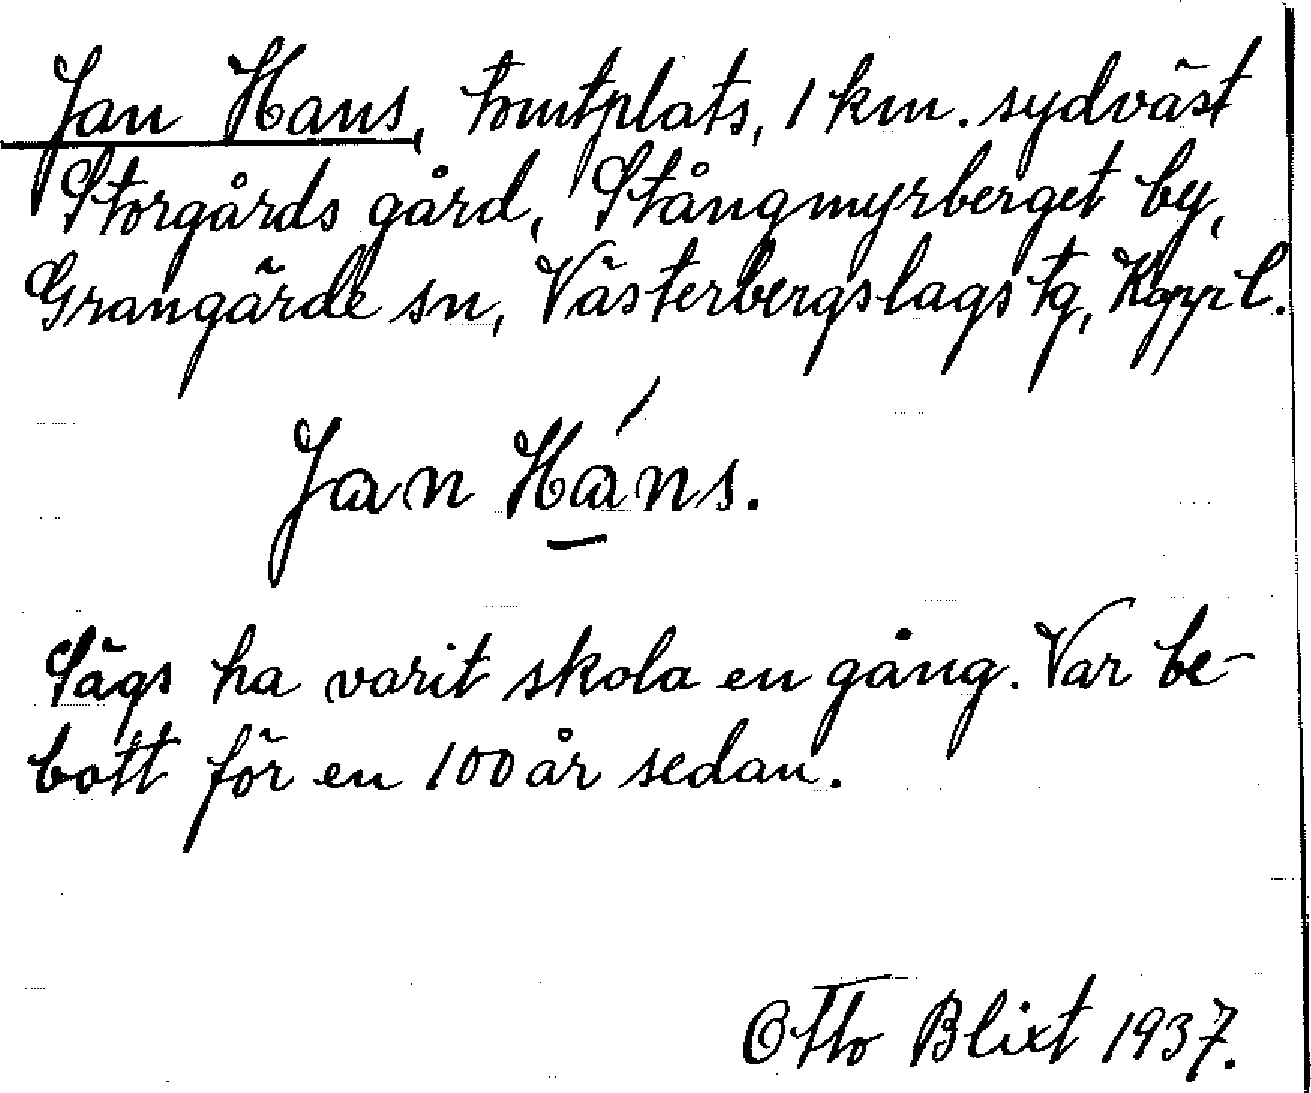 Jan Hans, tomtplats, 1 km. sydväst
Storgårds gård, Stångmyrberget by,
Grangärde sn, Västerbergslags tg, Kopp l.
Jan Háns.
Sägs ha varit skola en gång. Var be-
bott för en 100 år sedan.
Otto Blixt 1937.